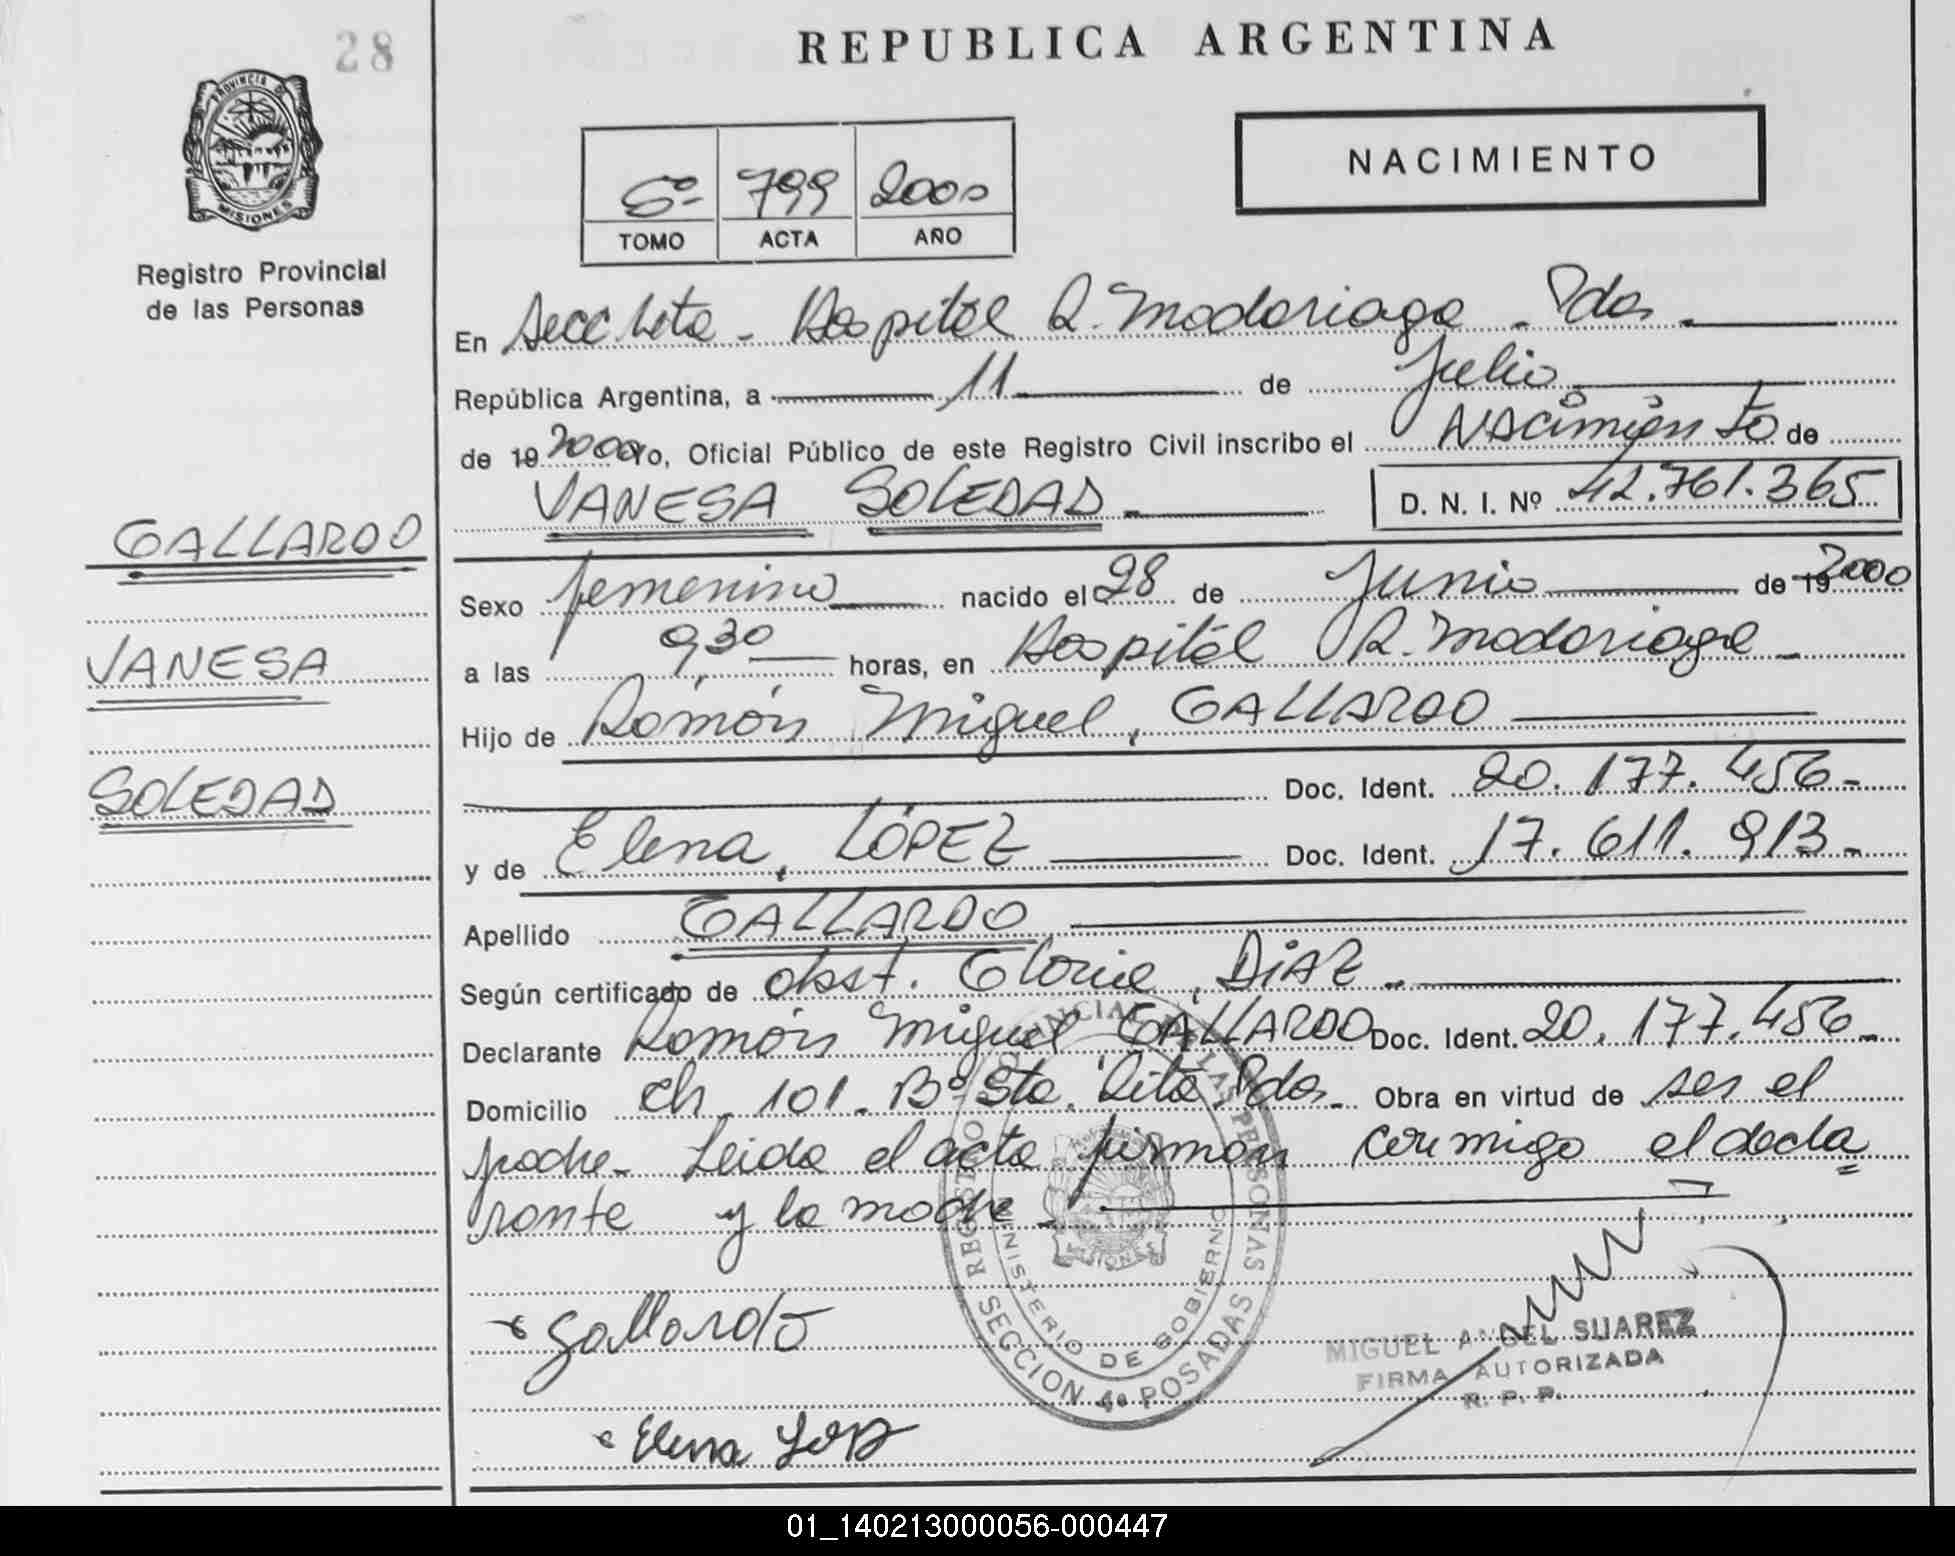 28
REPUBLICA ARGENTINA
PROVINCIA DE
MISIONES
Registro Provincial
de las Personas
5º 799 2000
TOMO ACTA AÑO
NACIMIENTO
En Secc 4ta - Hospital R. Madariaga - Pdas.
República Argentina, a 11 de Julio
de 19 2000 Yo, Oficial Público de este Registro Civil inscribo el Nacimiento de
VANESA SOLEDAD D. N. I. Nº 42.761.365
GALLARDO
VANESA
SOLEDAD
Sexo femenino nacido el 28 de Junio de 19 2000
a las 9,30 horas, en Hospital R. Madariaga -
Hijo de Ramón Miguel, GALLARDO
Doc. Ident. 20.177.456-
y de Elena, LÓPEZ Doc. Ident. 17.611.913-
Apellido GALLARDO
Según certificado de obst. Gloria, DIAZ.
Declarante Ramón Miguel GALLARDO Doc. Ident. 20.177.456-
Domicilio Ch. 101. Bº Sta. Rita, Pdas. Obra en virtud de ser el
padre. Leida el acta firman conmigo el decla
rante y la madre
REGISTRO PROVINCIAL DE LAS PERSONAS
MINISTERIO DE GOBIERNO
SECCION 4a POSADAS
Gallardo
MIGUEL ANGEL SUAREZ
FIRMA AUTORIZADA
R. P. P.
Elena
01_140213000056-000447